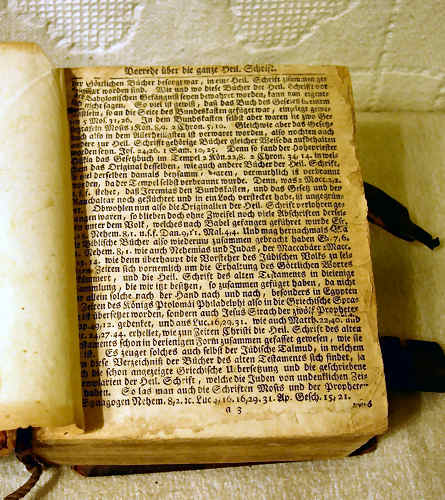 Vorrede über die ganze Heil. Schrift.
der Göttlichen Bücher besorget war, in eine Heil. Schrift zusammen ge
worden sind. Wie und wo diese Bücher der Heil. Schrift vor
Babylonischen Gefängniß seyen bewahret worden, kann man eigent
nicht sagen. So viel ist gewiß, daß das Buch des Gesetzes
so an die Seite des Bundeskasten
5 Mos. 31,26. In dem Bundskasten selbst aber waren die zwo Ge
Mosis 1 Kön. 8,9. 2 Chron. 5,10. Gleichwie aber das Gesetze
als in dem Allerheiligsten ist verwaret worden, also mochten auch
andere zur Heil. Schrift gehörige Bücher gleicher Weise da aufbehalten
worden seyn. Jos. 24,26. 1 Sam. 10,25. Denn so fand der Hohepriester
das Gesetzbuch im Tempel 2 Kön. 22,8. 2 Chron. 34,14. in wel
das Original desselben, wie auch andere Bücher der Heil. Schrift,
derselben damals beysamm waren, vermuthlich ist verbrannt
worden, da der Tempel selbst verbrannt wurde. Denn was 2 Macc. 2,4.
stehet, daß Jeremias den Bundskasten, und das Gesetz und den
Rauchaltar noch geflüchtet und in ein Loch verstecket habe, ist
Obwohlen nun also die Originalien der Heil. Schrift verlohren ge
gangen waren, so blieben doch ohne Zweifel noch viele Abschriften derselb
unter dem Volk, welches nach Babel gefangen geführet wurde
Nehem. 8,1. Dan. 9, Mal. 4,4. Und mag hernachmals
Biblische Bücher also wiederum zusammen gebracht haben 7,6.
Nehem. 8,1. wie auch Nehemias und Judas, der Maccabäer 2 Macc.
14. wie denn überhaupt die Vorsteher des Jüdischen Volks zu sel
Zeiten sich vornemlich um die Erhaltung des Göttlichen Wortes
und die Heil. Schrift des alten Testaments in diejenige
Sammlung, die wir itzt besitzen, so zusammen gefüget haben, da nicht
allein solche nach der Hand nach und nach, besonders in Egypten
Zeiten des Königs Ptolomäi Philadelphi also in die Griechische Spra
übersetzet worden, sondern auch Jesus Sirach der zwölf Propheten
49,12. gedenket, und aus Luc. 16,29.31. wie auch Matth. 22,40. und
24,27.44. erhellet, wie zun Zeiten Christi die Heil. Schrift des alten
Testaments schon in derjenigen Form zusammen gefasset gewesen, wie sie
ist. Es zeuget solches auch selbst der Jüdische Talmud, in welchem
diese Verzeichniß der Bücher des alten Testaments sich findet, ja
die schon angezeigte Griechische Übersetzung und die geschriebene
der Heil. Schrift, welche die Juden von undenklichen Zei
haben. So las man auch die Schriften Mosis und der Prophete-
Synagogen Nehem. 8,2. Luc. 4,16. 16,29.31. Ap. Gesch. 15,21.
a 3